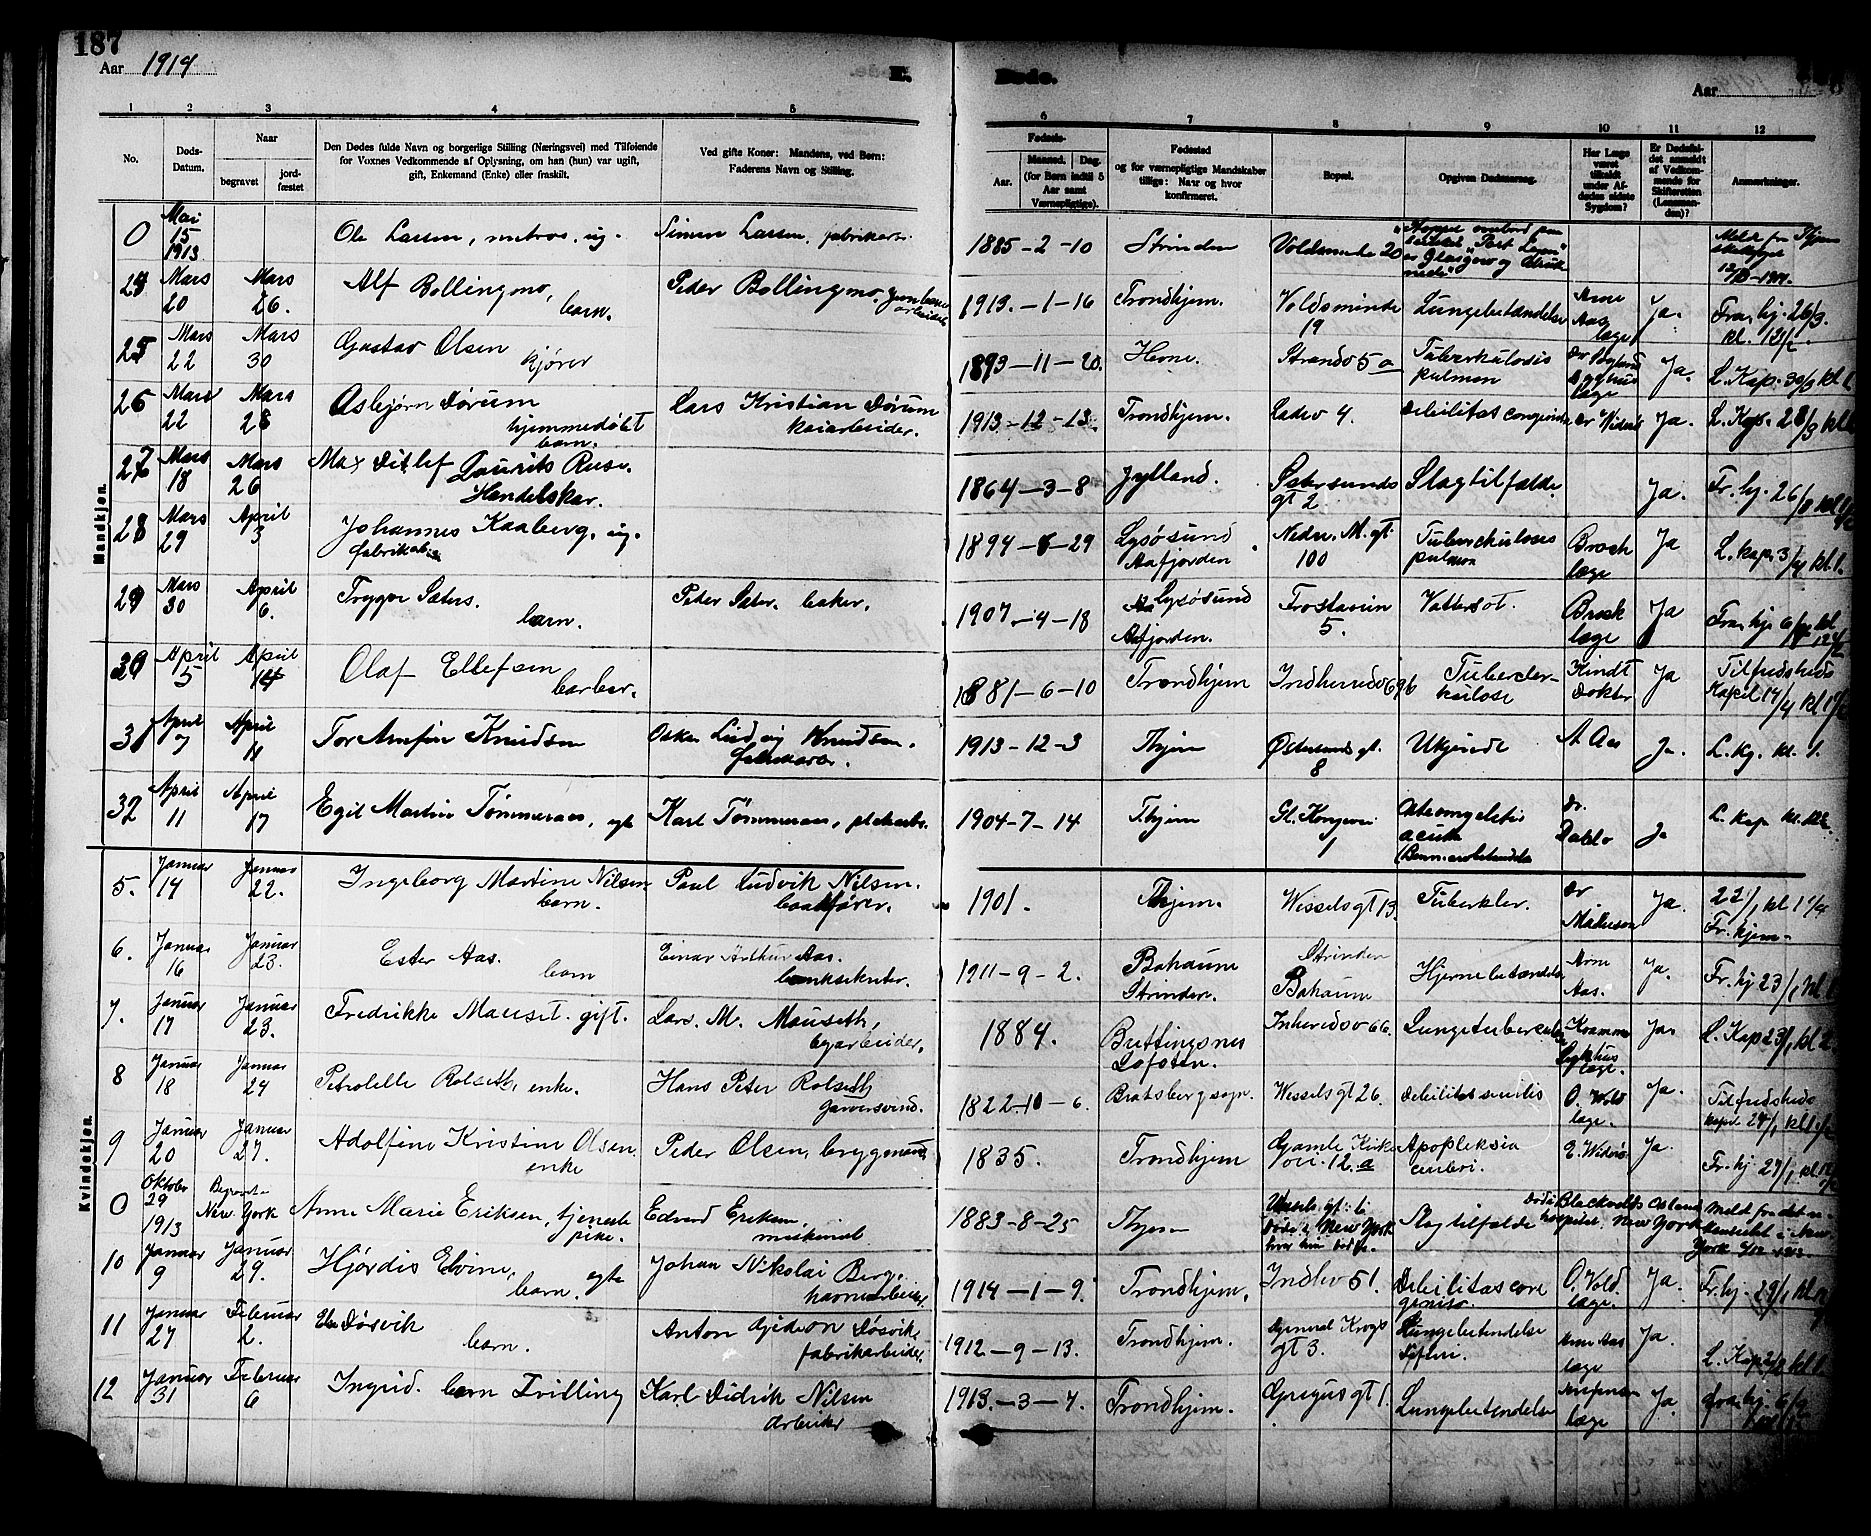 187
Aar 1914
E.
Døde.
Aar
1 2 3 4 5 6 7 8 9 10 11 12
No.
Døds-Datum.
Naar
begravet
jord-fæstet
Den Dødes fulde Navn og borgerlige Stilling (Næringsvei) med Tilføiende
for Voxnes Vedkommende af Oplysning, om han (hun) var ugift,
gift, Enkemand (Enke) eller fraskilt.
Ved gifte Koner: Mandens, ved Børn:
Faderens Navn og Stilling.
Fødsels-
Aar.
Maaned. Dag.
(for Børn indtil 5
Aar samt
Værnepligtige).
Fødested
og for værnepligtige Mandskaber
tillige: Naar og hvor
konfirmeret.
Bopæl.
Opgiven Dødsaarsag.
Har Læge
været
tilkaldt
under Af-
dødes sidste
Sygdom?
Er Dødsfal-
det anmeldt
af Vedkom-
mende for
Skifteretten
(Lensman-
den)?
Anmærkninger.
Mandkjøn.
0 Mai 15 1913 Ole Larsen, matros, ug. Simen Larsen, fabrikarb. 1885-2-10 Strinden Voldsminde 20
Mars 20 Mars 26. Alf Bollingmo, barn. Peder Bollingmo, 1913.-1-16 Trondhjem. Voldsminde 19 Lungebetændelse Arne Aas læge Ja. Fra hj. 26/3. kl. 12½
25 Mars 22 Mars 30 Gustav Olsen kjører 1893-11-20. Hevne. Strandv 5 a Tuberkulosis pulmon læge Ja. L. Kap. 30/3 kl 1.
26 Mars 22 Mars 28 Asbjørn Dørum hjemmedøbt barn. Lars Kristian Dørum kaiarbeider. 1913-12-13. Trondhjem. Ladev 4. Debilitas congenita Ja. L. Kap. 28/3
27 Mars 18 Mars 26 Max Ditlef Laurits Ruse. Handelskar. 1864-3-8 Jylland. Østersunds gt 2 Slagtilfælde. Ja. Fr. hj. 26/3
28 Mars 29 April 3 Johannes Kaaberg, ug. fabrikarb. 1894-6-29 Lysøsund Aafjorden Nedre M. gt 100 Tuberkuloses pulmon læge Ja L. kap. 3/4 kl. 1.
29 Mars 30 April 6. Trygve Sæters. barn. Peder Sæter. baker. 1907.-4-18 Lysøsund Aafjorden. Frostavein 5. Vattersot. læge Ja Fra hj. 6/4
30 April 5 April 14 Olaf Ellefsen barber. 1881-6-10 Trondhjem Indherredsv 69 b Tuberkulose Kindt Doktor Ja Tilfredsheds Kapel 14/4
31 April 7 April 11 Tor Arnfin Knudsen Oskar Ludvig Knudsen. fabrikarb. 1913-12-3 Thjem Østersunds gt. 8 A Aas Ja. kl. 1.
32 April 11 April 17 Egil Martin Tømmeraas, egte Karl Tømmeraas, 1904-7-14 Thjem Gl. Kongevei 1 Osteomyelitis acuta dr. Dahl Ja L. kap
Kvindekjøn.
5. Januar 14 Januar 22. Ingeborg Martine Nilsen barn. Paul Ludvik Nilsen. baatfører. 1901. Thjem. Wessels gt 13 Tuberkler. Dr Ja. 22/1 kl 1¼ Fr. hjem.
6. Januar 16 Januar 23. Ester Aas. barn Einar Arthur Aas. banksekretær. 1911-9-2. Bakaune Strinden. Strinden Bakaune Hjernebetændelse Arne Aas. Ja. Fr. hj 23/1
7. Januar 17 Januar 23. Fredrikke Mauset. gift. Lars. M. Mauseth, byarbeider. 1884. Buttingsnes Lofoten. Inheredsv 66. Lungetuberkulose Sykhus læge. Ja. L. Kap 23/1 kl 2
8 Januar 18 Januar 24 Petrolelle Rolseth, enke. Hans Peter Rolseth garversvend. 1822-10-6. Bratsberg sogn. Wessels gt 26. Debilitas senilis O. Vold læge. Ja. Tilfredsheds kapel 24/1
9 Januar 20 Januar 27. Adolfine Kristine Olsen enke Peder Olsen, bryggemand 1835. Trondhjem Gamle Kirke vei 12. a Apopleksia cerebri. Ja. Fr. hj 27/1
0 Oktober 29 1913 Begravet New York Anne Marie Eriksen, tjeneste pike. Edvard Eriksen, maskinist 1883-8-25 Thjem Wessels gt. Døde i New York hvor hun bodde. Slagtilfælde Døde Blackwells Island hospital. New York York
10 Januar 9 Januar 29. Hjørdis Elvine, barn. egte Johan Nikolai Berg, havnearbeider. 1914-1-9. Trondhjem. Indhv 51. Debilitas congenita. O. Vold læge. Ja. Fr. hj. 29/1
11 Januar 27 Februar 2. Døsvik barn. Anton Gideon Døsvik, fabrikarbeider. 1912-9-13. Trondhjem. General Krogs gt 3. Lungebetendelse Difteri. Arne Aas læge Ja. L. Kap 2/2 kl 1.
12 Januar 31 Februar 6 Ingrid. barn Tvilling Karl Didrik Nilsen Arbeider 1913.-3-4. Trondhjem. Gregus gt 1. Lungebetendelse læge Ja. fra hj. 6/2